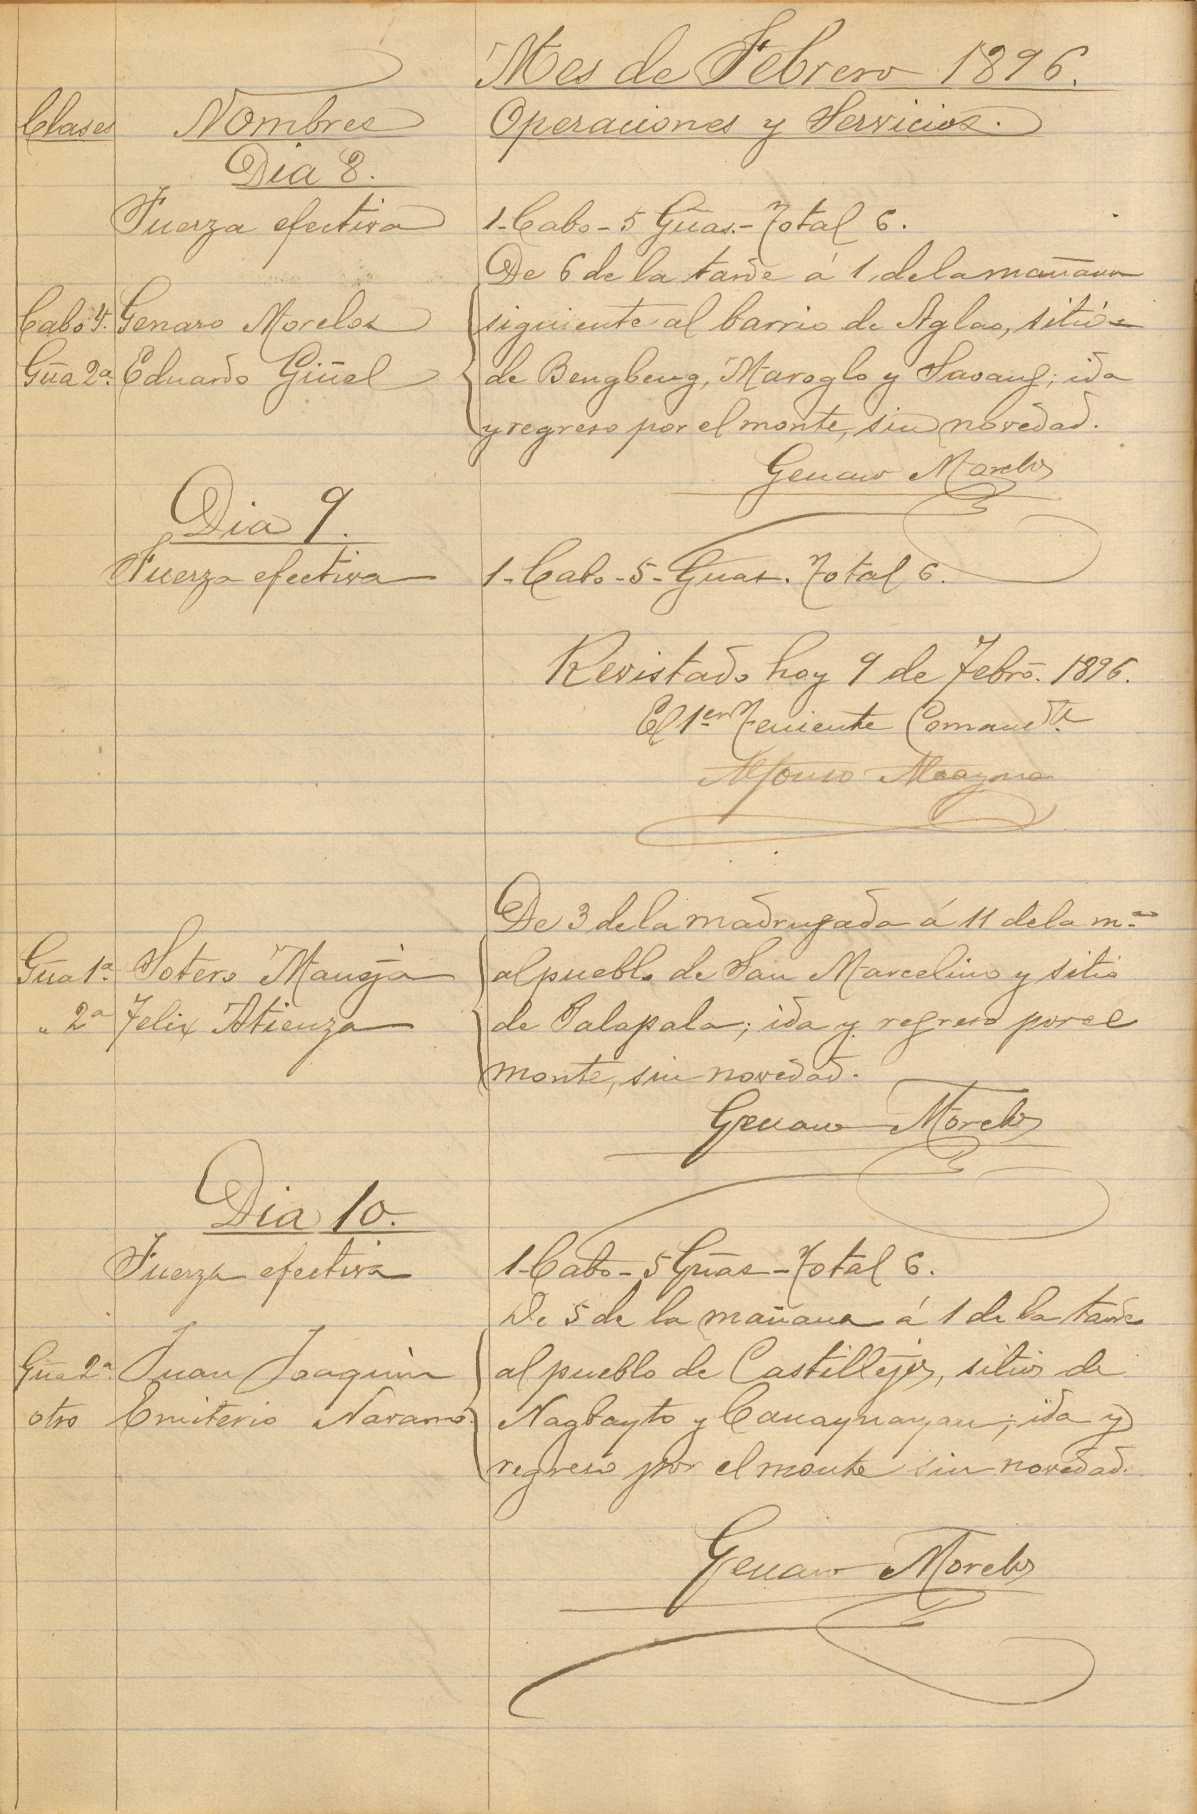 Mes de Febrero 1896.
Clases Nombres Operaciones y Servicios.
Dia 8.
Fuerza efectiva 1-Cabo-5 Gũas.-Total 6.
De 6 de la tarde á 1, de la mañana
Cabo Yº. Genaro Morelos siguiente al barrio de Aglao, sitios
Gũa 2ª. Eduardo Giñel de Bengbeng, Maroglo y Sasang; ida
y regreso por el monte, sin novedad.
Genaro Morelos
Dia 9.
Fuerza efectiva 1-Cabo-5-Gũas. Total 6.
Revistado hoy 9 de Febrō. 1896.
El 1er Teniente Comandte.
Alfonso
De 3 de la madrugada á 11 de la mña
Gũa 1ª. Sotero Mangja al pueblo de San Marcelino y sitio
" 2ª Felix Atienza de Salapala; ida y regreso por el
monte, sin novedad.
Genaro Morelos
Dia 10.
Fuerza efectiva 1-Cabo-5 Gũas-Total 6.
De 5 de la mañana á 1 de la tarde
Gũa 2ª. Juan Joaquin al pueblo de Castillejos, sitios de
otro Emiterio Navarro. Nagbayto y Canaynayan; ida y
regreso por el monte sin novedad.
Genaro Morelos